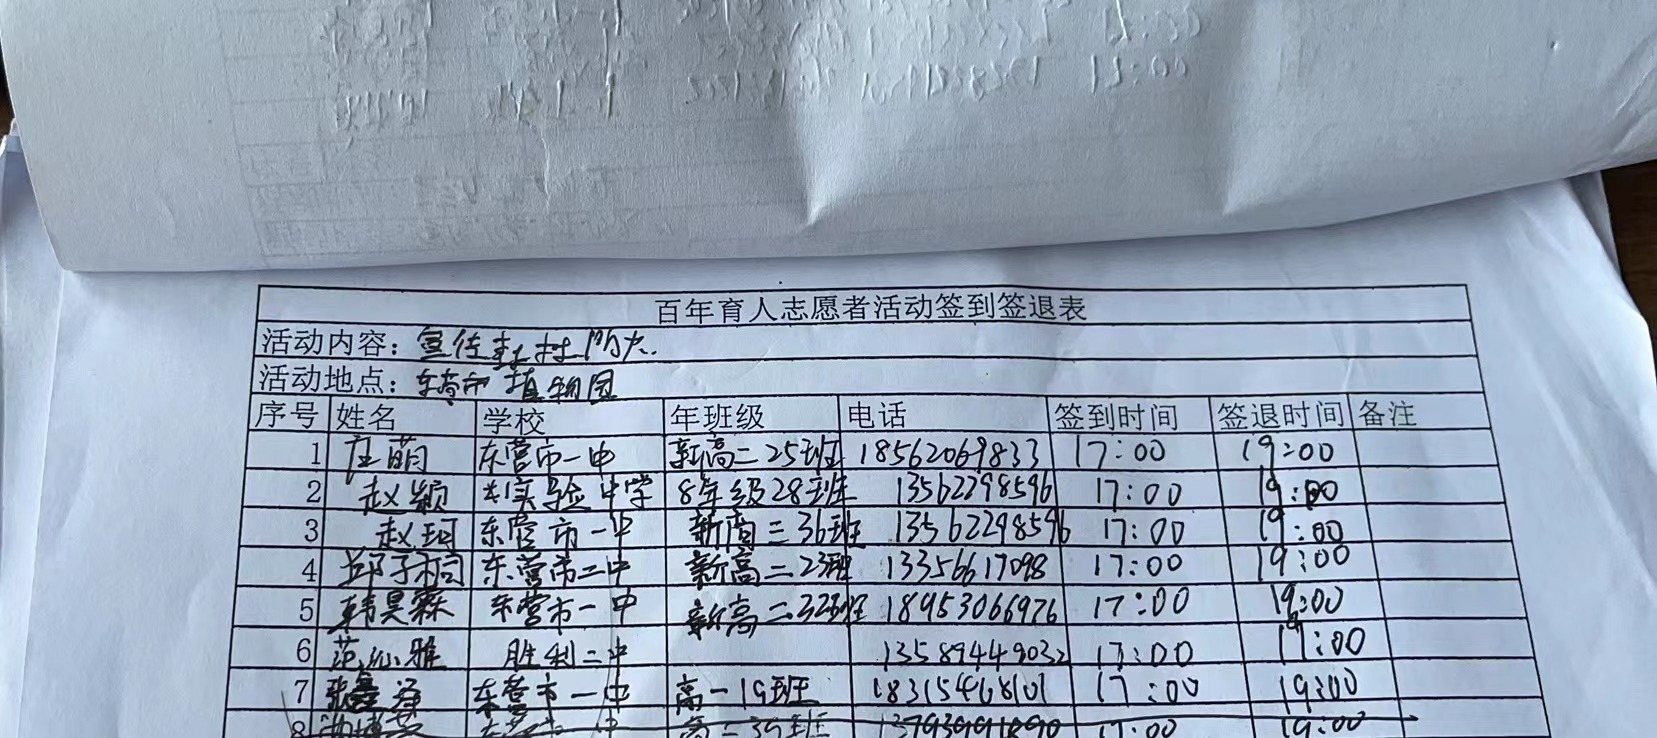 百年育人志愿者活动签到签退表
活动内容：宣传森林防火.
活动地点：东营市植物园
序号 姓名 学校 年班级 电话 签到时间 签退时间 备注
1 庄萌 东营市一中 新高二25班 18562069833 17:00 19:00
2 赵颖 实验中学 8年级28班 13562298596 17:00 19:00
3 赵珂 东营市一中 新高二36班 13562298596 17:00 19:00
4 邱子桐 东营市二中 新高二23班 13356617098 17:00 19:00
5 韩昊霖 东营市一中 新高二32班 18953066976 17:00 19:00
6 范沁雅 胜利二中 13589449032 17:00 19:00
7 东营市一中 高一19班 18315468101 17:00 19:00
8 高二39班 17:00 19:00